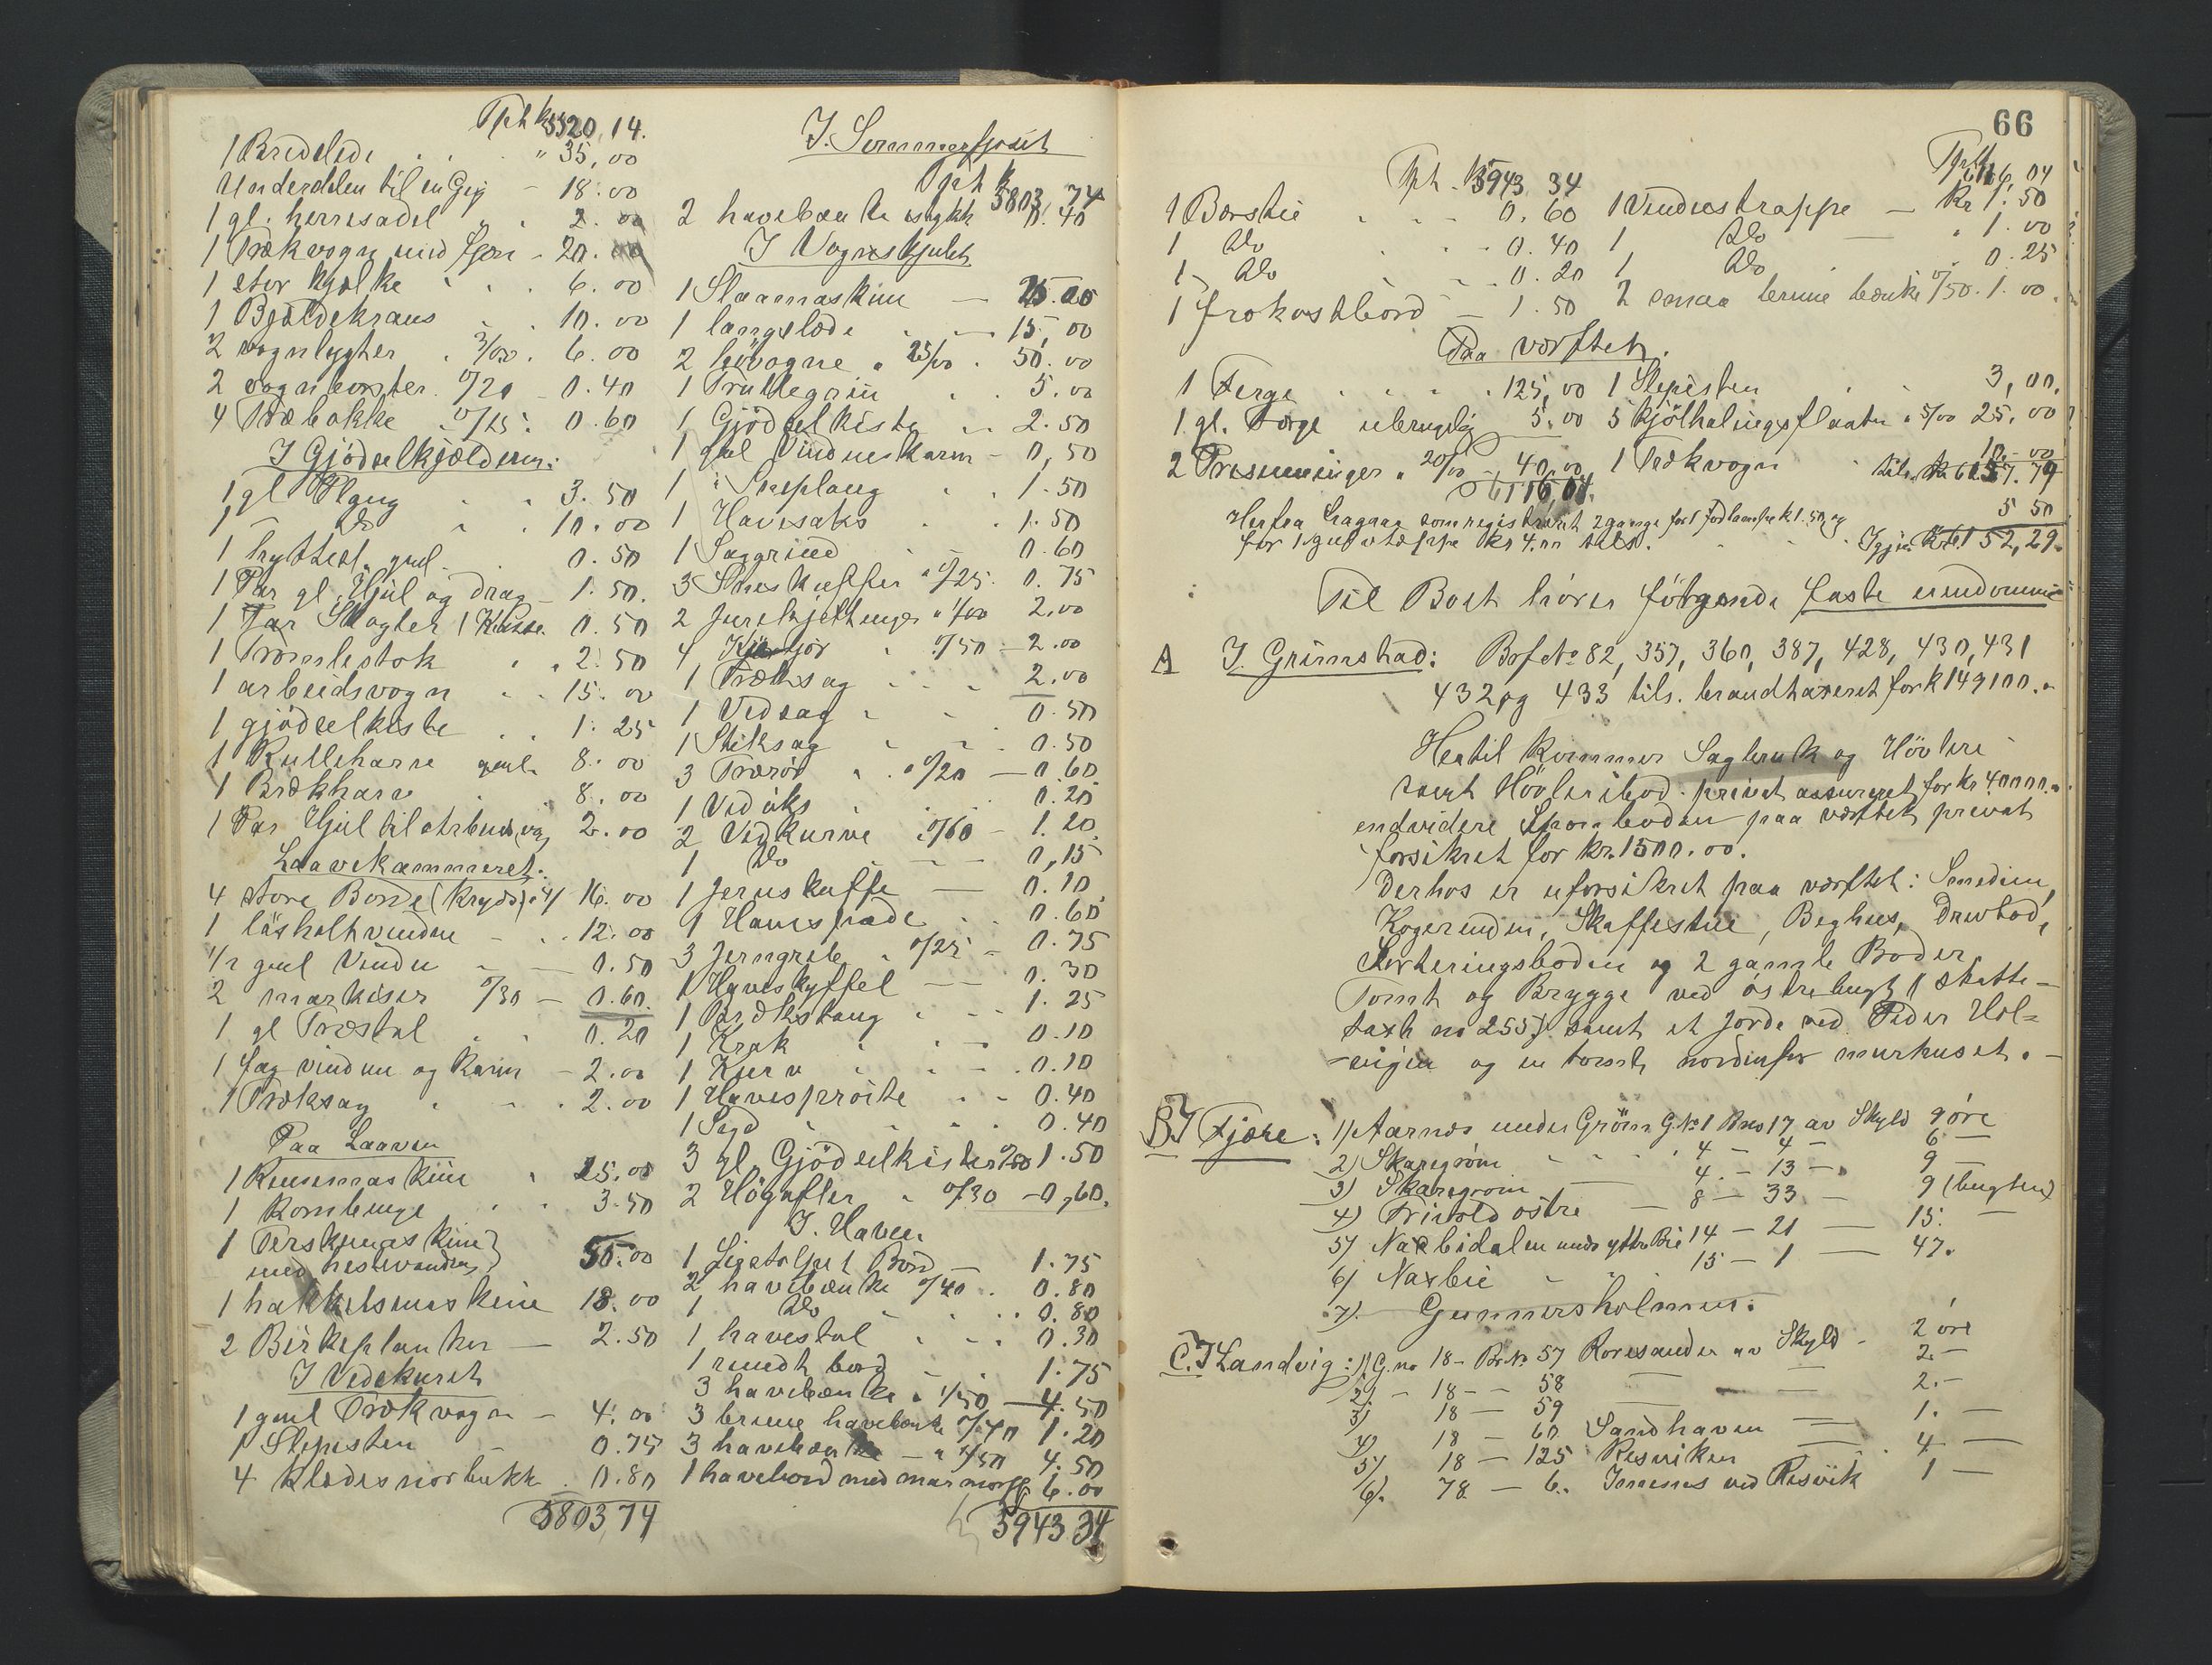 Tph k 5520,14.
1 Bredslede " 35,00
Underdelen til en Gig - 18.00
1 gl. herresadel " 2.00
1 Trækvogn med - 20.00
1 stor Kjælke 6.00
1 Bjeldekrans 10.00
2 vognlygter 3/00. 6.00
2 vognbørster 0/20 0.40
4 Træbakke 0/15: 0.60
I Gjödselkjælderen:
1 gl Plaug 3.50
1 Do 10.00
1 gml. 0.50
1 Par gl. Hjul og Drag - 1.50.
1 Par Skagler 1 Kasse 0.50
1 Tromlestok 2.50
1 arbeidsvogn 15.00
1 gjödselkiste 1.25
1 Rulleharv gml. 8.00
1 Brækharv 8.00
1 Par Hjul til Arbeidsvog 2.00
Laavekammeret:
4 store Borde (Kryds) a 4/ 16.00
1 12.00
1/2 gml Vindu 0.50
2 markiser 0/30 - 0.60.
1 gl Træstol 0.20
1 fag vinduer og Karm - 2.00
1 Træksag 2.00
Paa Laaven
1 Rensemaskine 25.00
1 Kornbinge 3.50
1 Terskemaskine
med hestevandring 55.00
1 hakkelsmaskine 18.00
2 Birkeplanker - 2.50
I Vedskuret
1 gml Trækvogn - 4.00
1 Slipesten - 0.75
4 Klædesnorbukk. 0.80
5803 74
I. Sommerfjöset
Tph k 5803 74
2 havebænke istykk 0.40
I Vognskjulet
1 Slaamaskine - 25.00
1 langslæde - 15,00
2 høvogne a 25/00 . 50.00
1 Trullegrin 5.00
1 Gjödselkiste 2.50
1 gml Vindueskarm - 0,50
1 " Sneplaug 1.50
1 Havesaks 1.50
1 Saggrind 0.60
3 Sneskuffer a 0/25. 0.75
2 Jernkjettinger a 1/00 2.00
4 0/50 - 2.00
1 Træksag 2.00
1 Vedsag 0.50
1 Stiksag 0.50
3 Trærør " 0/20 - 0.60
1 Vedöks 0.25
2 Vedkurve a 0/60 - 1.20
1 Do - 0,15
1 Jernskuffe - 0.10
1 Havespade 0.60
3 Jerngreb a 0/25 - 0.75
1 Haveskyffel - - 0.30
1 Brækstang 1.25
1 Krak 0.10
1 Kurv 0.10
1 Havesprøite - - 0.40
1 Sigd 0.40
3 gl Gjödselkister 0/50 1.50
2 Högafler a 0/30 - 0,60.
I. Haven
1 Bord - 1.75
2 havebænke 0/40 . 0.80
1 Do 0.80
1 havestol 0.30
1 rundt bord - 1.75
3 havebænke a 1/50 - 4.50
3 brune havebænke 0/40 1.20
3 havebænke - a 1/50 4.50
1 havebord med marmorpl 6.00
5943 34
66
Tph. k 5943 34
1 Børstie 0.60
1 Do 0.40
1 Do 0.20
1 frokostbord - 1.50
Tph k 6116,04
1 Vinduestrappe - kr 1.50
1 Do - " 1.00
1 Do 0.25
2 smaa brune bænke 0/50. 1.00.
Paa værftet.
1 Ferge 125,00 1 Slipesten 3,00.
1 gl. Ferge ubrugelig 5.00 5 Kjölhalingsflaater a 5/00 25.00
2 Presenninger a 20/00 - 40,00, 1 Trækvogn 10.00
6116,04. tils. kr 6157.79
Herfra fragaar som registreret 2 gange for 1 k 1.50 og 5 50
for 1 gulvtæppe kr 4.00 tils. Igjen Kr 6152,29.
Til Boet hører følgende faste eiendomme
A I. Grimstad: Brf No 82, 357, 360, 387, 428, 430, 431
432 og 433 tils. brandtaxeret for k 149100.-
Hertil kommer Sagbruk og Hövleri
samt Hövleribod. privat assureret for kr 40000.-
endvidere Sponboden paa værftet privat
forsikret for kr. 1500.00.
Derhos er uforsikret paa værftet: Smedien,
Kogerenden, Skaffestue, Beghus, Drevbod,
Sorteringsboden og 2 gamle Boder,
Tomt og Brygge ved östrebugt (Skatte-
taxt no 255) samt et Jorde ved Peder Hol=
-vigen og en tomt nordenfor murhuset. -
B I Fjære: 1) Aarnes under Gröm G No 1 Bno 17 av Skyld 9 öre
2) Skaregröm - 4 - 4 - 6 -
3) Skaregrom - 4. - 13 - 9 -
4) Trivold östre - 8 - 33 - 9 (bugten)
5) Naxbidalen under yttre Bie 14 - 21 - 15. -
6) Naxbie - 15 - 1 - 47.
7) Gunnersholmen.
C. I Landvig: 1) G. no 18 - Br No 57 Roresanden av Skyld - 2 öre
2) - 18 - - 58 - 2. -
3) 18 - 59 - 2. -
4) 18 - 60 Sandhaven - 1. -
5) 18 - 125 Resviken - 4 -
6). 78 - 6. ved Resvik 1 -